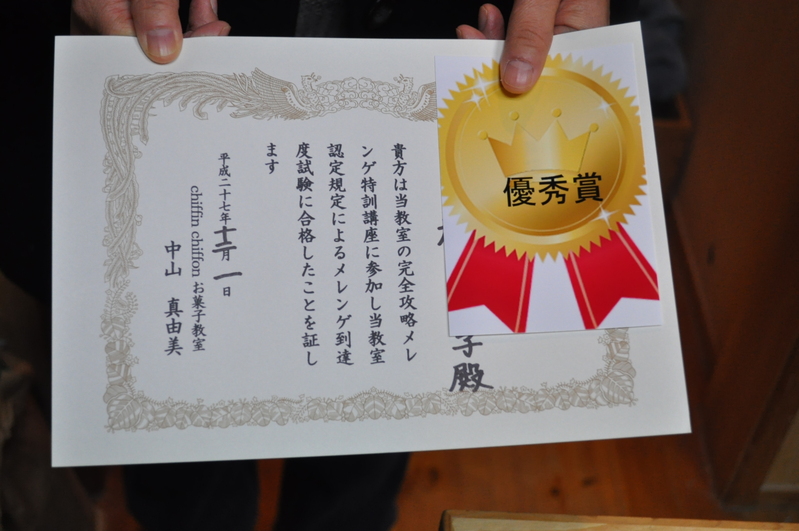 優秀賞
子殿
貴方は当教室の完全攻略メレ
ンゲ特訓講座に参加し当教室
認定規定によるメレンゲ到達
度試験に合格したことを証し
ます
平成二十七年十二月一日
chiffin chiffon お菓子教室
中山 真由美